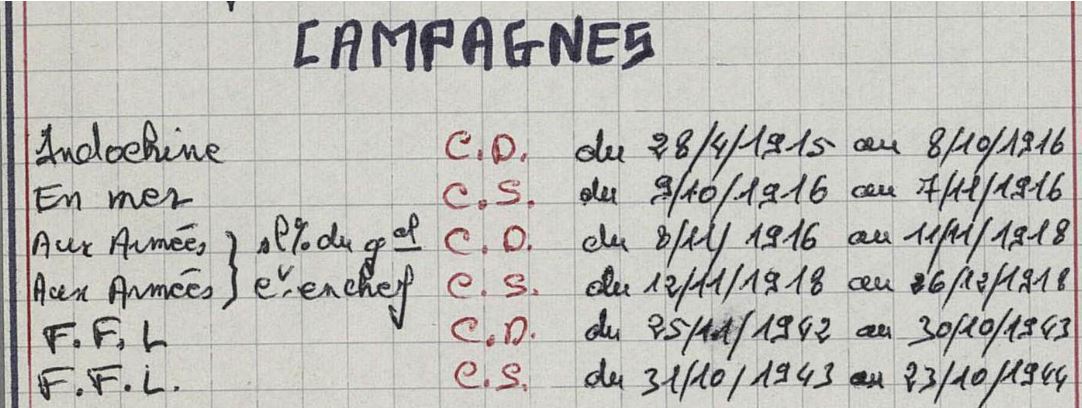 CAMPAGNES
Indochine C.D. du 28/4/1915 au 8/10/1916
En mer C.S. du 9/10/1916 au 7/11/1916
Aux Armées } s/s% du gal C.D. du 8/11/1916 au 11/11/1918
Aux Armées } en chef C.S. du 12/11/1918 au 26/12/1918
F.F.L C.D. du 25/11/1942 au 30/10/1943
F.F.L. C.S. du 31/10/1943 au 23/10/1944